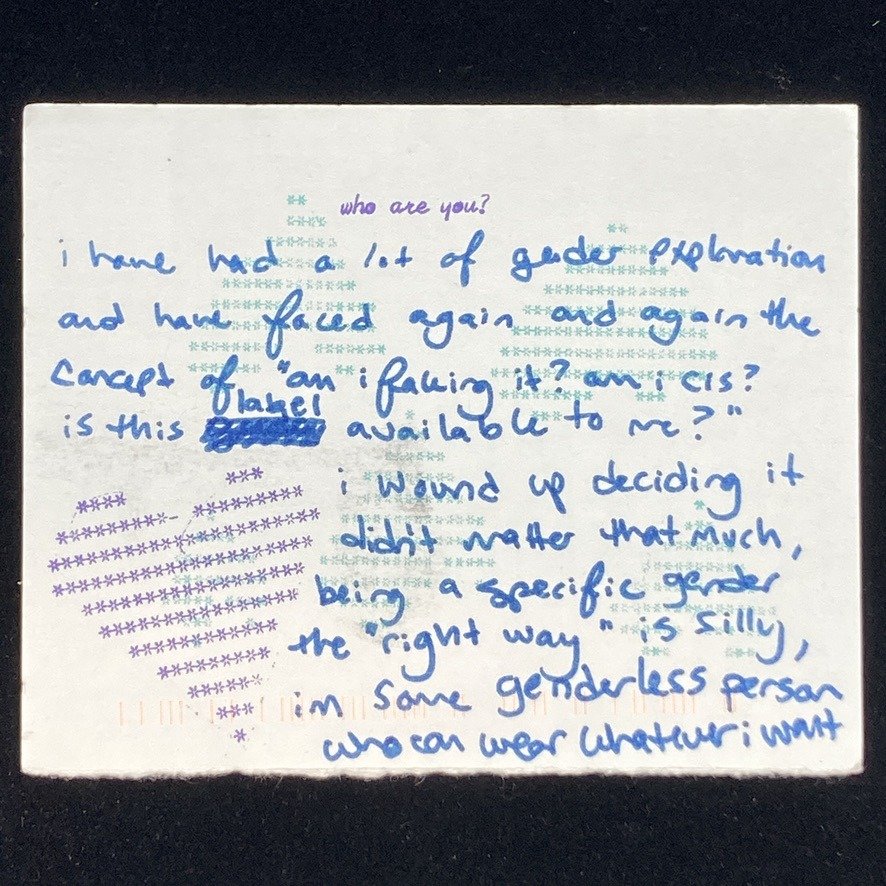 who are you?
i have had a lot of gender exploration
and have faced again and again the
concept of "am i faking it? am i cis?
is this label available to me?"
i wound up deciding it
didn't matter that much,
being a specific gender
the "right way" is silly,
im some genderless person
who can wear whatever i want